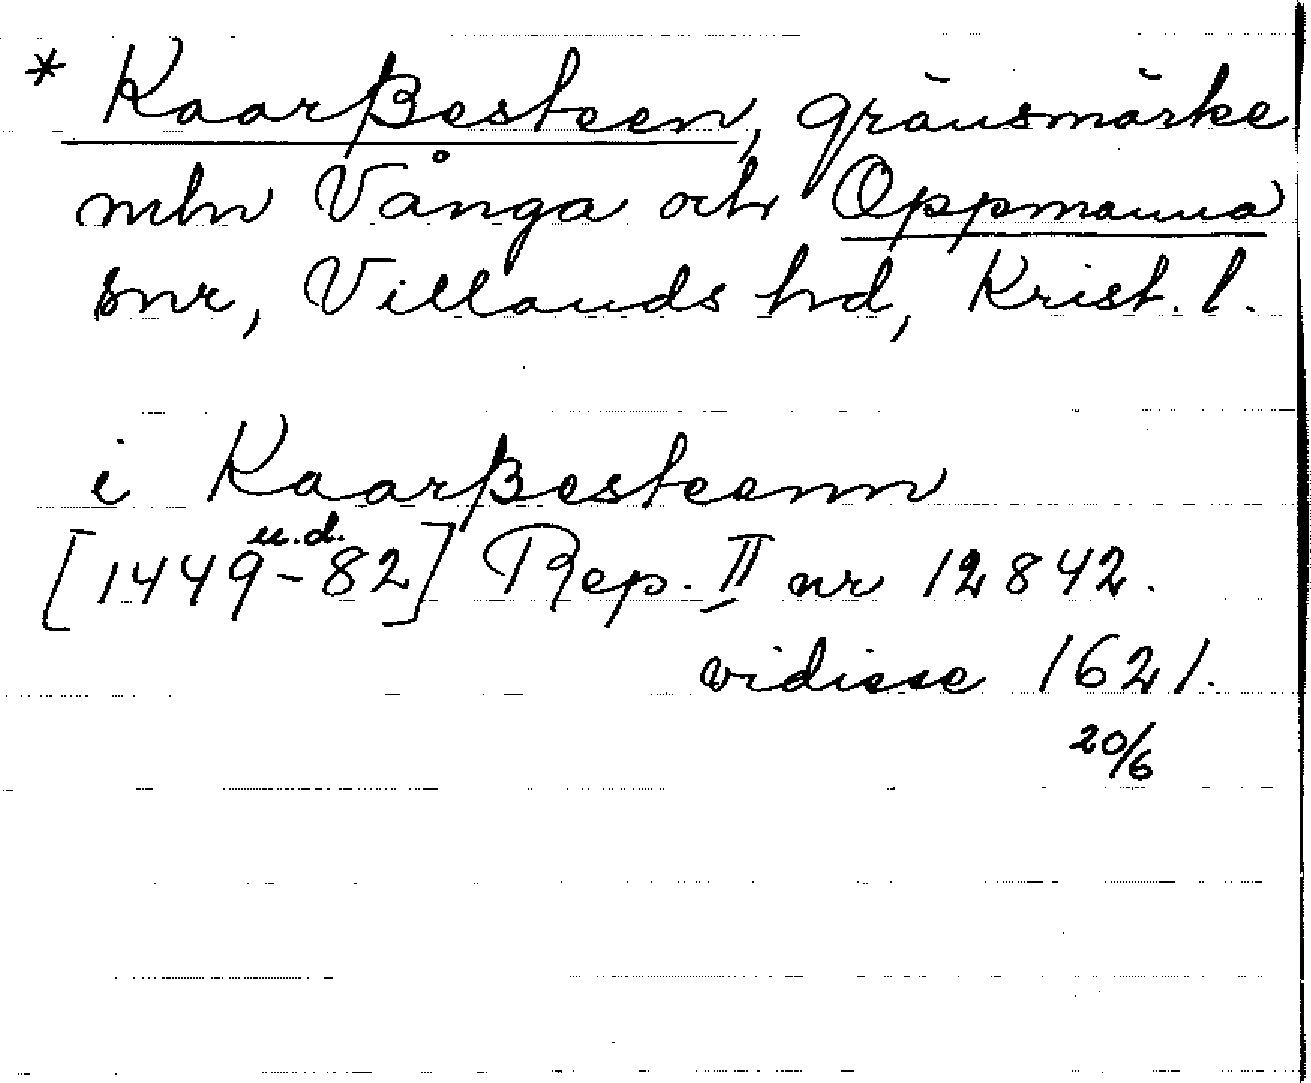 * Kaarßesteen, gränsmärke
mln Vånga och Oppmanna
snr, Villands hd, Krist. l.
i Kaarßesteenn
u.d.
[1449-82] Rep. II nr 12842.
vidisse 1621.
20/6